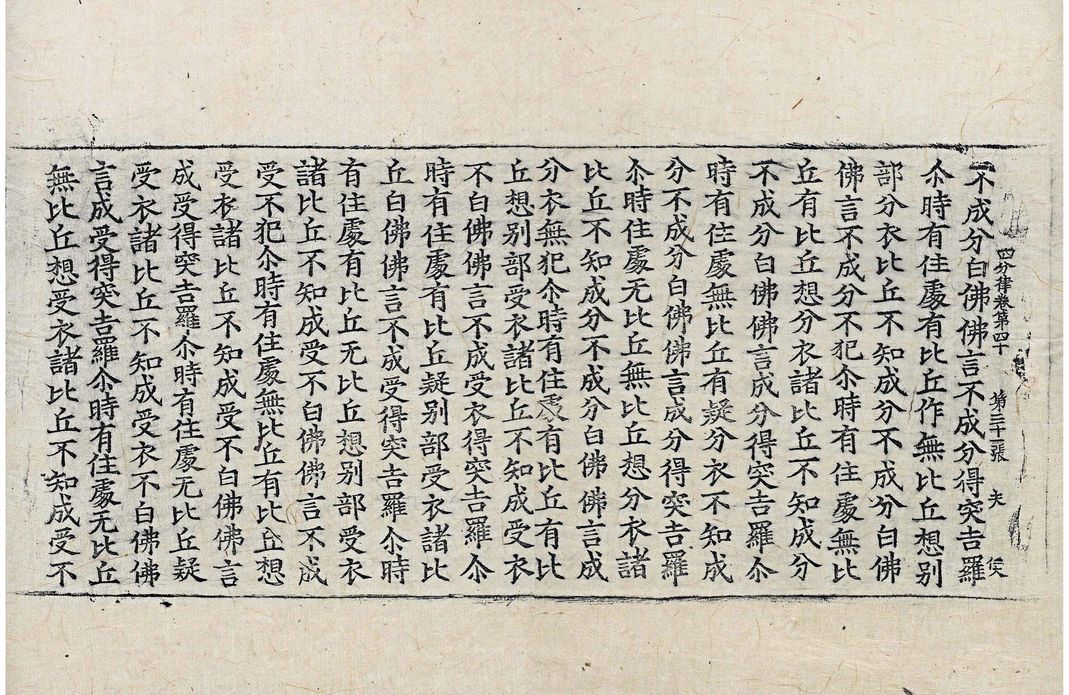 四分律卷第四十 第三十二張 夫 侯
不成分白佛佛言不成分得突吉羅
尒時有住處有比丘作無比丘想別
部分衣比丘不知成分不成分白佛
佛言不成分不犯尒時有住處無比
丘有比丘想分衣諸比丘不知成分
不成分白佛佛言成分得突吉羅尒
時有住處無比丘有疑分衣不知成
分不成分白佛佛言成分得突吉羅
尒時住處无比丘無比丘想分衣諸
比丘不知成分不成分白佛佛言成
分衣無犯尒時有住處有比丘有比
丘想別部受衣諸比丘不知成受衣
不白佛佛言不成受衣得突吉羅尒
時有住處有比丘疑別部受衣諸比
丘白佛佛言不成受得突吉羅尒時
有住處有比丘无比丘想別部受衣
諸比丘不知成受不白佛佛言不成
受不犯尒時有住處無比丘有比丘想
受衣諸比丘不知成受不白佛佛言
成受得突吉羅尒時有住處无比丘疑
受衣諸比丘不知成受衣不白佛佛
言成受得突吉羅尒時有住處无比丘
無比丘想受衣諸比丘不知成受不